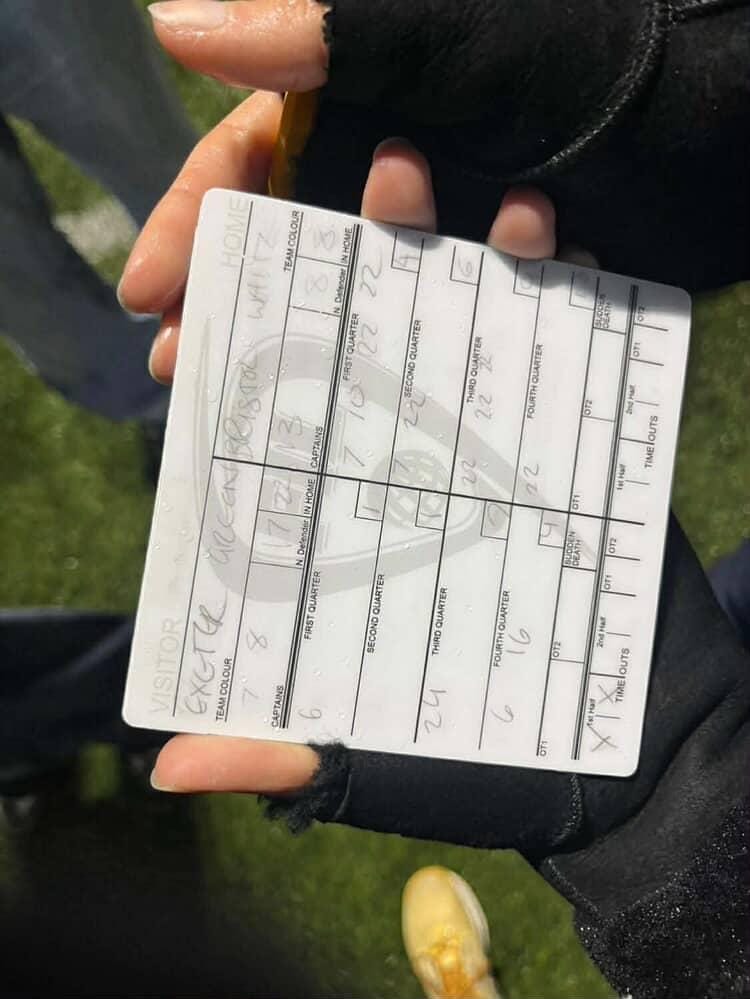 VISITOR
EXETER GREEN
TEAM COLOUR
7 8 17 22
CAPTAINS N. Defender IN HOME
FIRST QUARTER
6 1
SECOND QUARTER
THIRD QUARTER
24
FOURTH QUARTER
6 16 4
OT1 OT2 SUDDEN DEATH
1st Half 2nd Half OT1 OT2
X X
TIME OUTS
HOME
BRISTOL WHITE
TEAM COLOUR
13 8 8
CAPTAINS N. Defender IN HOME
FIRST QUARTER
7 10 22 22 4
SECOND QUARTER
7 22 6
THIRD QUARTER
22 22
FOURTH QUARTER
22
OT1 OT2 SUDDEN DEATH
1st Half 2nd Half OT1 OT2
TIME OUTS